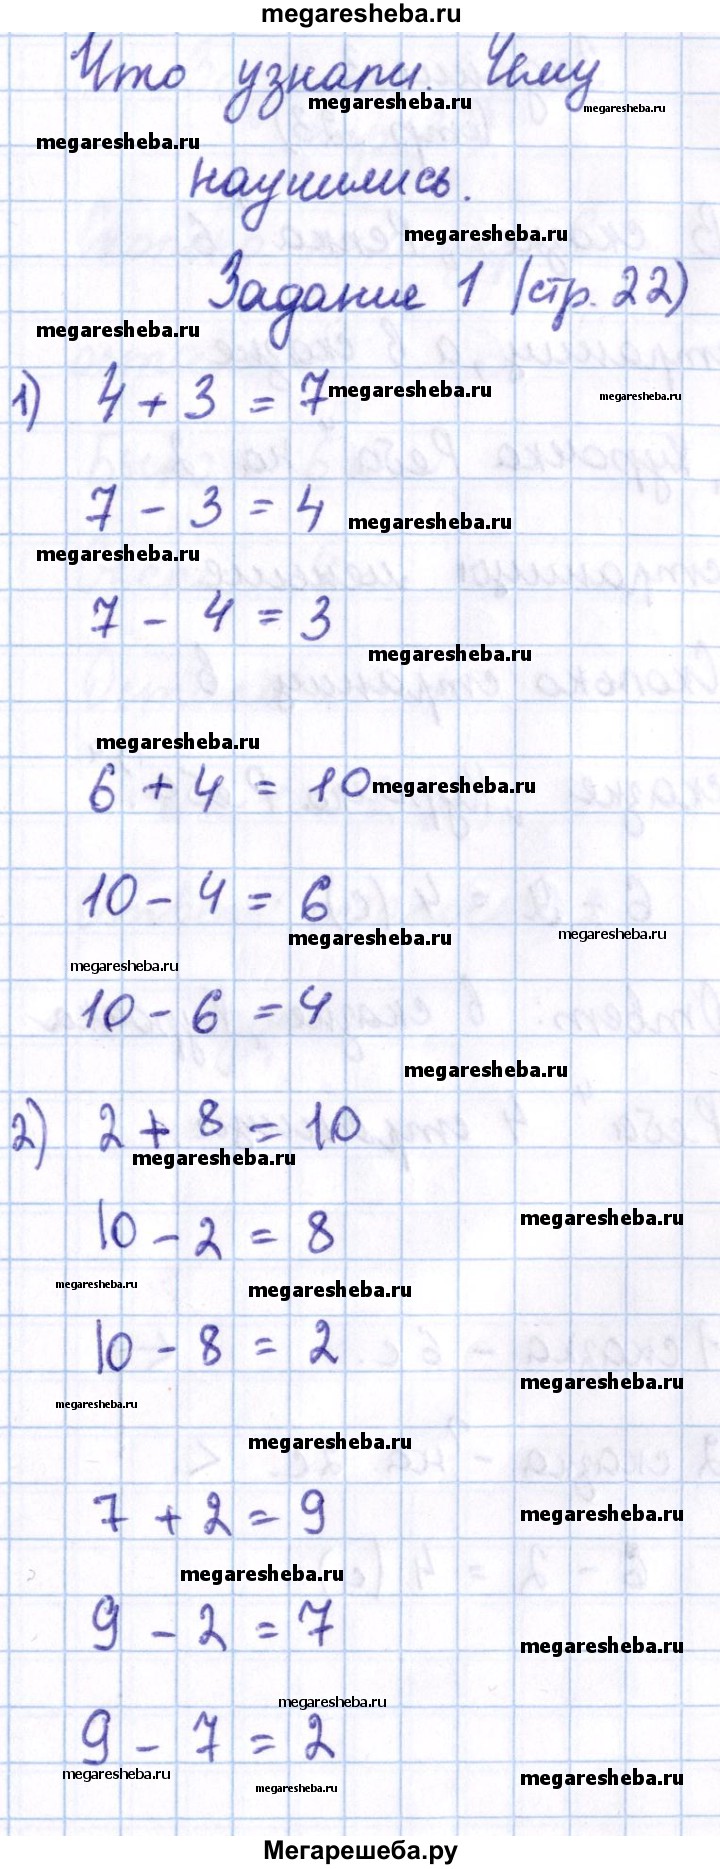 megaresheba.ru
Что узнали. Чему
megaresheba.ru
megaresheba.ru
megaresheba.ru
научились.
megaresheba.ru
Задание 1 (стр. 22)
megaresheba.ru
1) 4 + 3 = 7
megaresheba.ru
megaresheba.ru
7 - 3 = 4
megaresheba.ru
megaresheba.ru
7 - 4 = 3
megaresheba.ru
megaresheba.ru
6 + 4 = 10
megaresheba.ru
10 - 4 = 6
megaresheba.ru
megaresheba.ru
megaresheba.ru
10 - 6 = 4
megaresheba.ru
2) 2 + 8 = 10
megaresheba.ru
megaresheba.ru
10 - 2 = 8
megaresheba.ru
megaresheba.ru
10 - 8 = 2
megaresheba.ru
megaresheba.ru
megaresheba.ru
7 + 2 = 9
megaresheba.ru
megaresheba.ru
9 - 2 = 7
megaresheba.ru
megaresheba.ru
9 - 7 = 2
megaresheba.ru
megaresheba.ru
megaresheba.ru
Мегарешеба.ру